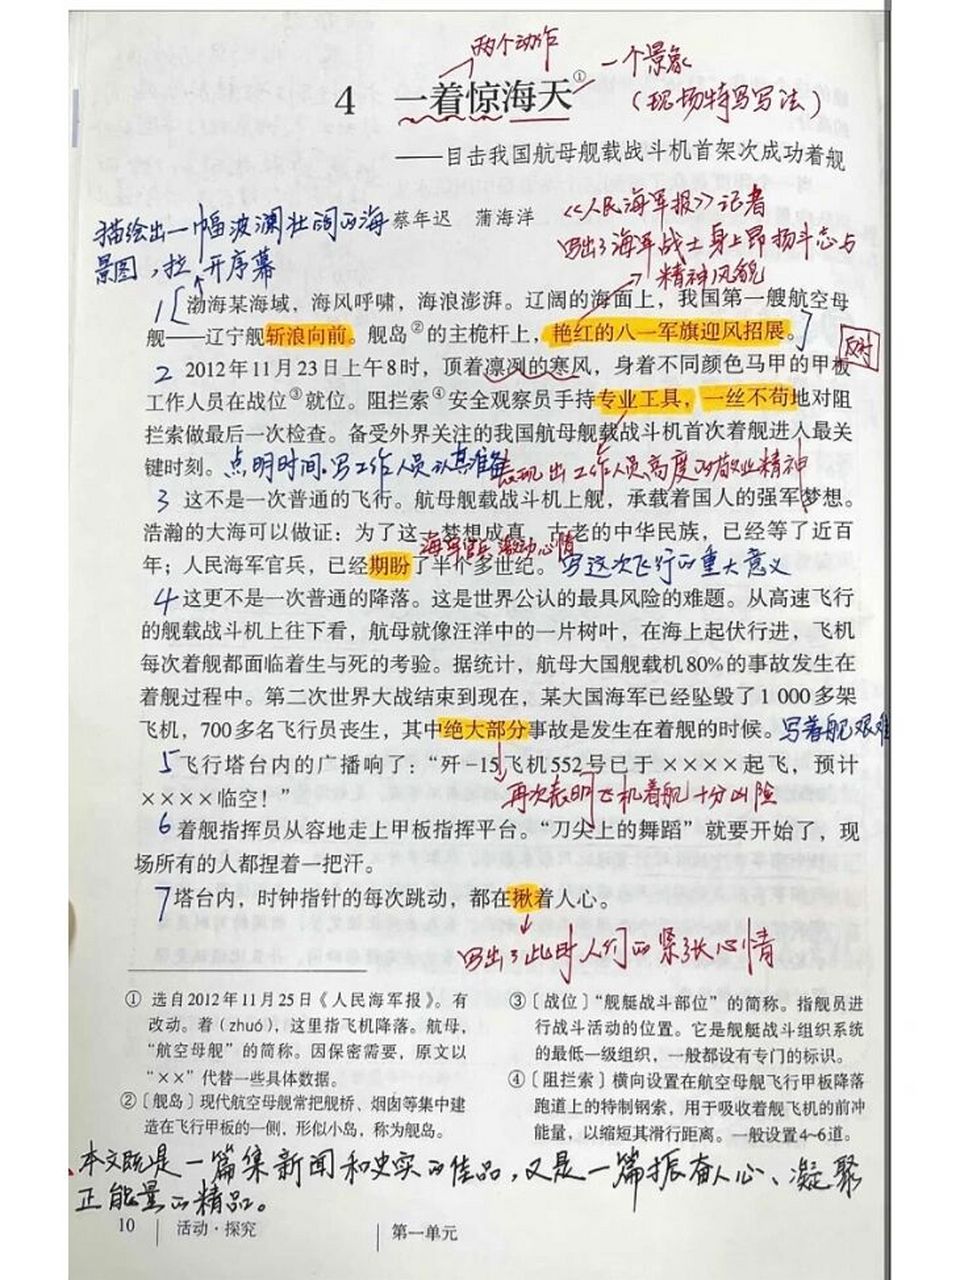 两个动作
一个景象
4 一着惊海天①
(现场特写写法)
——目击我国航母舰载战斗机首架次成功着舰
蔡年迟 蒲海洋
《人民海军报》记者
描绘出一幅波澜壮阔的海
景图，拉开序幕
写出了海军战士身上昂扬斗志与
精神风貌
1 渤海某海域，海风呼啸，海浪澎湃。辽阔的海面上，我国第一艘航空母
舰——辽宁舰斩浪向前。舰岛②的主桅杆上，艳红的八一军旗迎风招展。
反衬
2 2012年11月23日上午8时，顶着凛冽的寒风，身着不同颜色马甲的甲板
工作人员在战位③就位。阻拦索④安全观察员手持专业工具，一丝不苟地对阻
拦索做最后一次检查。备受外界关注的我国航母舰载战斗机首次着舰进入最关
键时刻。
点明时间。写工作人员认真准备
表现出工作人员高度的敬业精神
3 这不是一次普通的飞行。航母舰载战斗机上舰，承载着国人的强军梦想。
浩瀚的大海可以做证：为了这一梦想成真，古老的中华民族，已经等了近百
海军官兵激动心情
年；人民海军官兵，已经期盼了半个多世纪。
写这次飞行的重大意义
4 这更不是一次普通的降落。这是世界公认的最具风险的难题。从高速飞行
的舰载战斗机上往下看，航母就像汪洋中的一片树叶，在海上起伏行进，飞机
每次着舰都面临着生与死的考验。据统计，航母大国舰载机80%的事故发生在
着舰过程中。第二次世界大战结束到现在，某大国海军已经坠毁了1 000多架
飞机，700多名飞行员丧生，其中绝大部分事故是发生在着舰的时候。
写着舰艰难
5 飞行塔台内的广播响了：“歼-15飞机552号已于××××起飞，预计
××××临空！”
再次表明飞机着舰十分凶险
6 着舰指挥员从容地走上甲板指挥平台。“刀尖上的舞蹈”就要开始了，现
场所有的人都捏着一把汗。
7 塔台内，时钟指针的每次跳动，都在揪着人心。
写出了此时人们的紧张心情
① 选自2012年11月25日《人民海军报》。有
改动。着（zhuó），这里指飞机降落。航母，
“航空母舰”的简称。因保密需要，原文以
“××”代替一些具体数据。
② 〔舰岛〕现代航空母舰常把舰桥、烟囱等集中建
造在飞行甲板的一侧，形似小岛，称为舰岛。
③ 〔战位〕“舰艇战斗部位”的简称。指舰员进
行战斗活动的位置。它是舰艇战斗组织系统
的最低一级组织，一般都设有专门的标识。
④ 〔阻拦索〕横向设置在航空母舰飞行甲板降落
跑道上的特制钢索，用于吸收着舰飞机的前冲
能量，以缩短其滑行距离。一般设置4~6道。
本文既是一篇集新闻和史实的佳品，又是一篇振奋人心、凝聚
正能量的精品。
10 活动·探究 第一单元